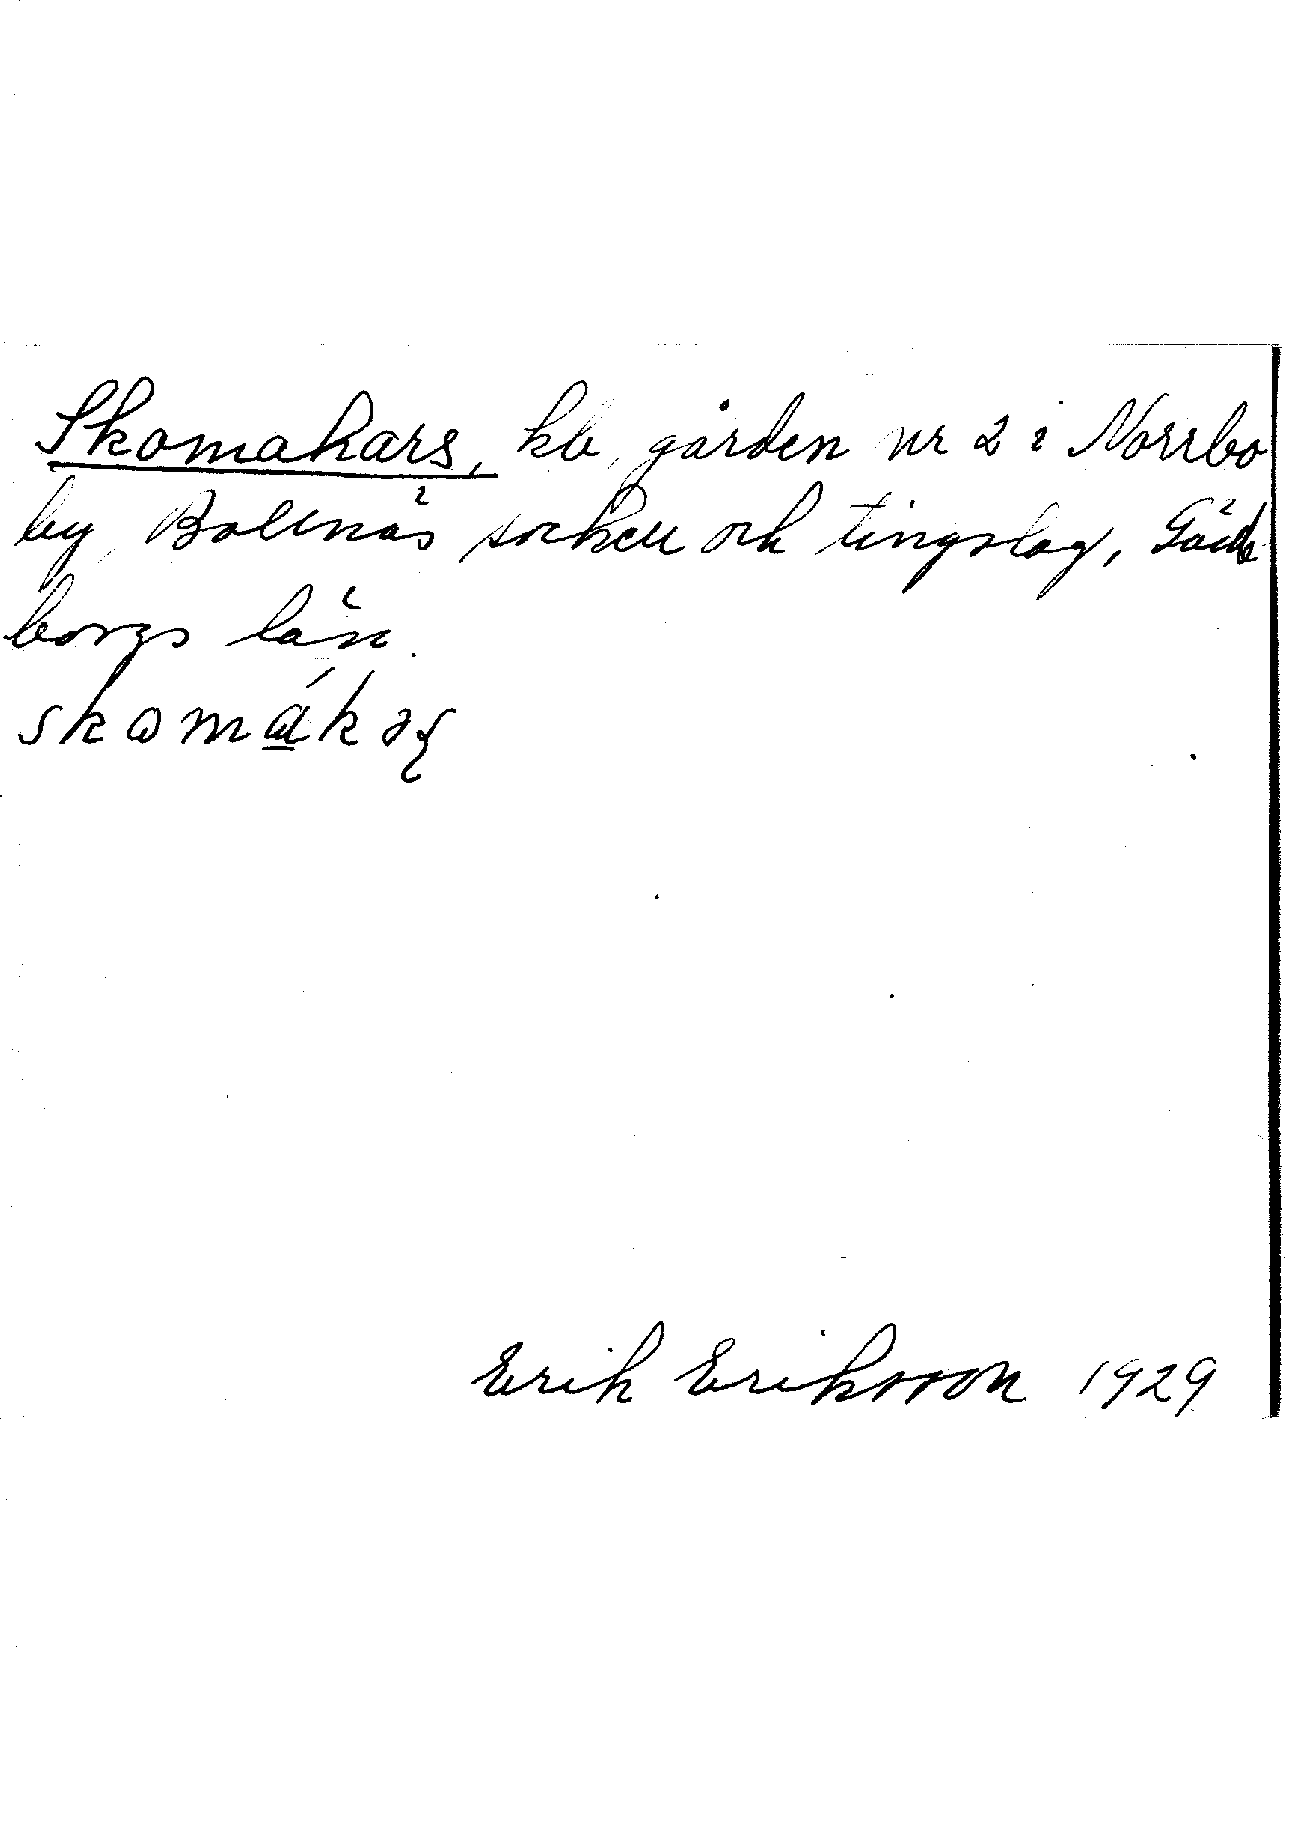 Skomakars, kb, gården nr 2 i Norrbo
by, Bollnäs socken och tingslag, Gävle
borgs län.
skomákaʂ
Erik Eriksson 1929